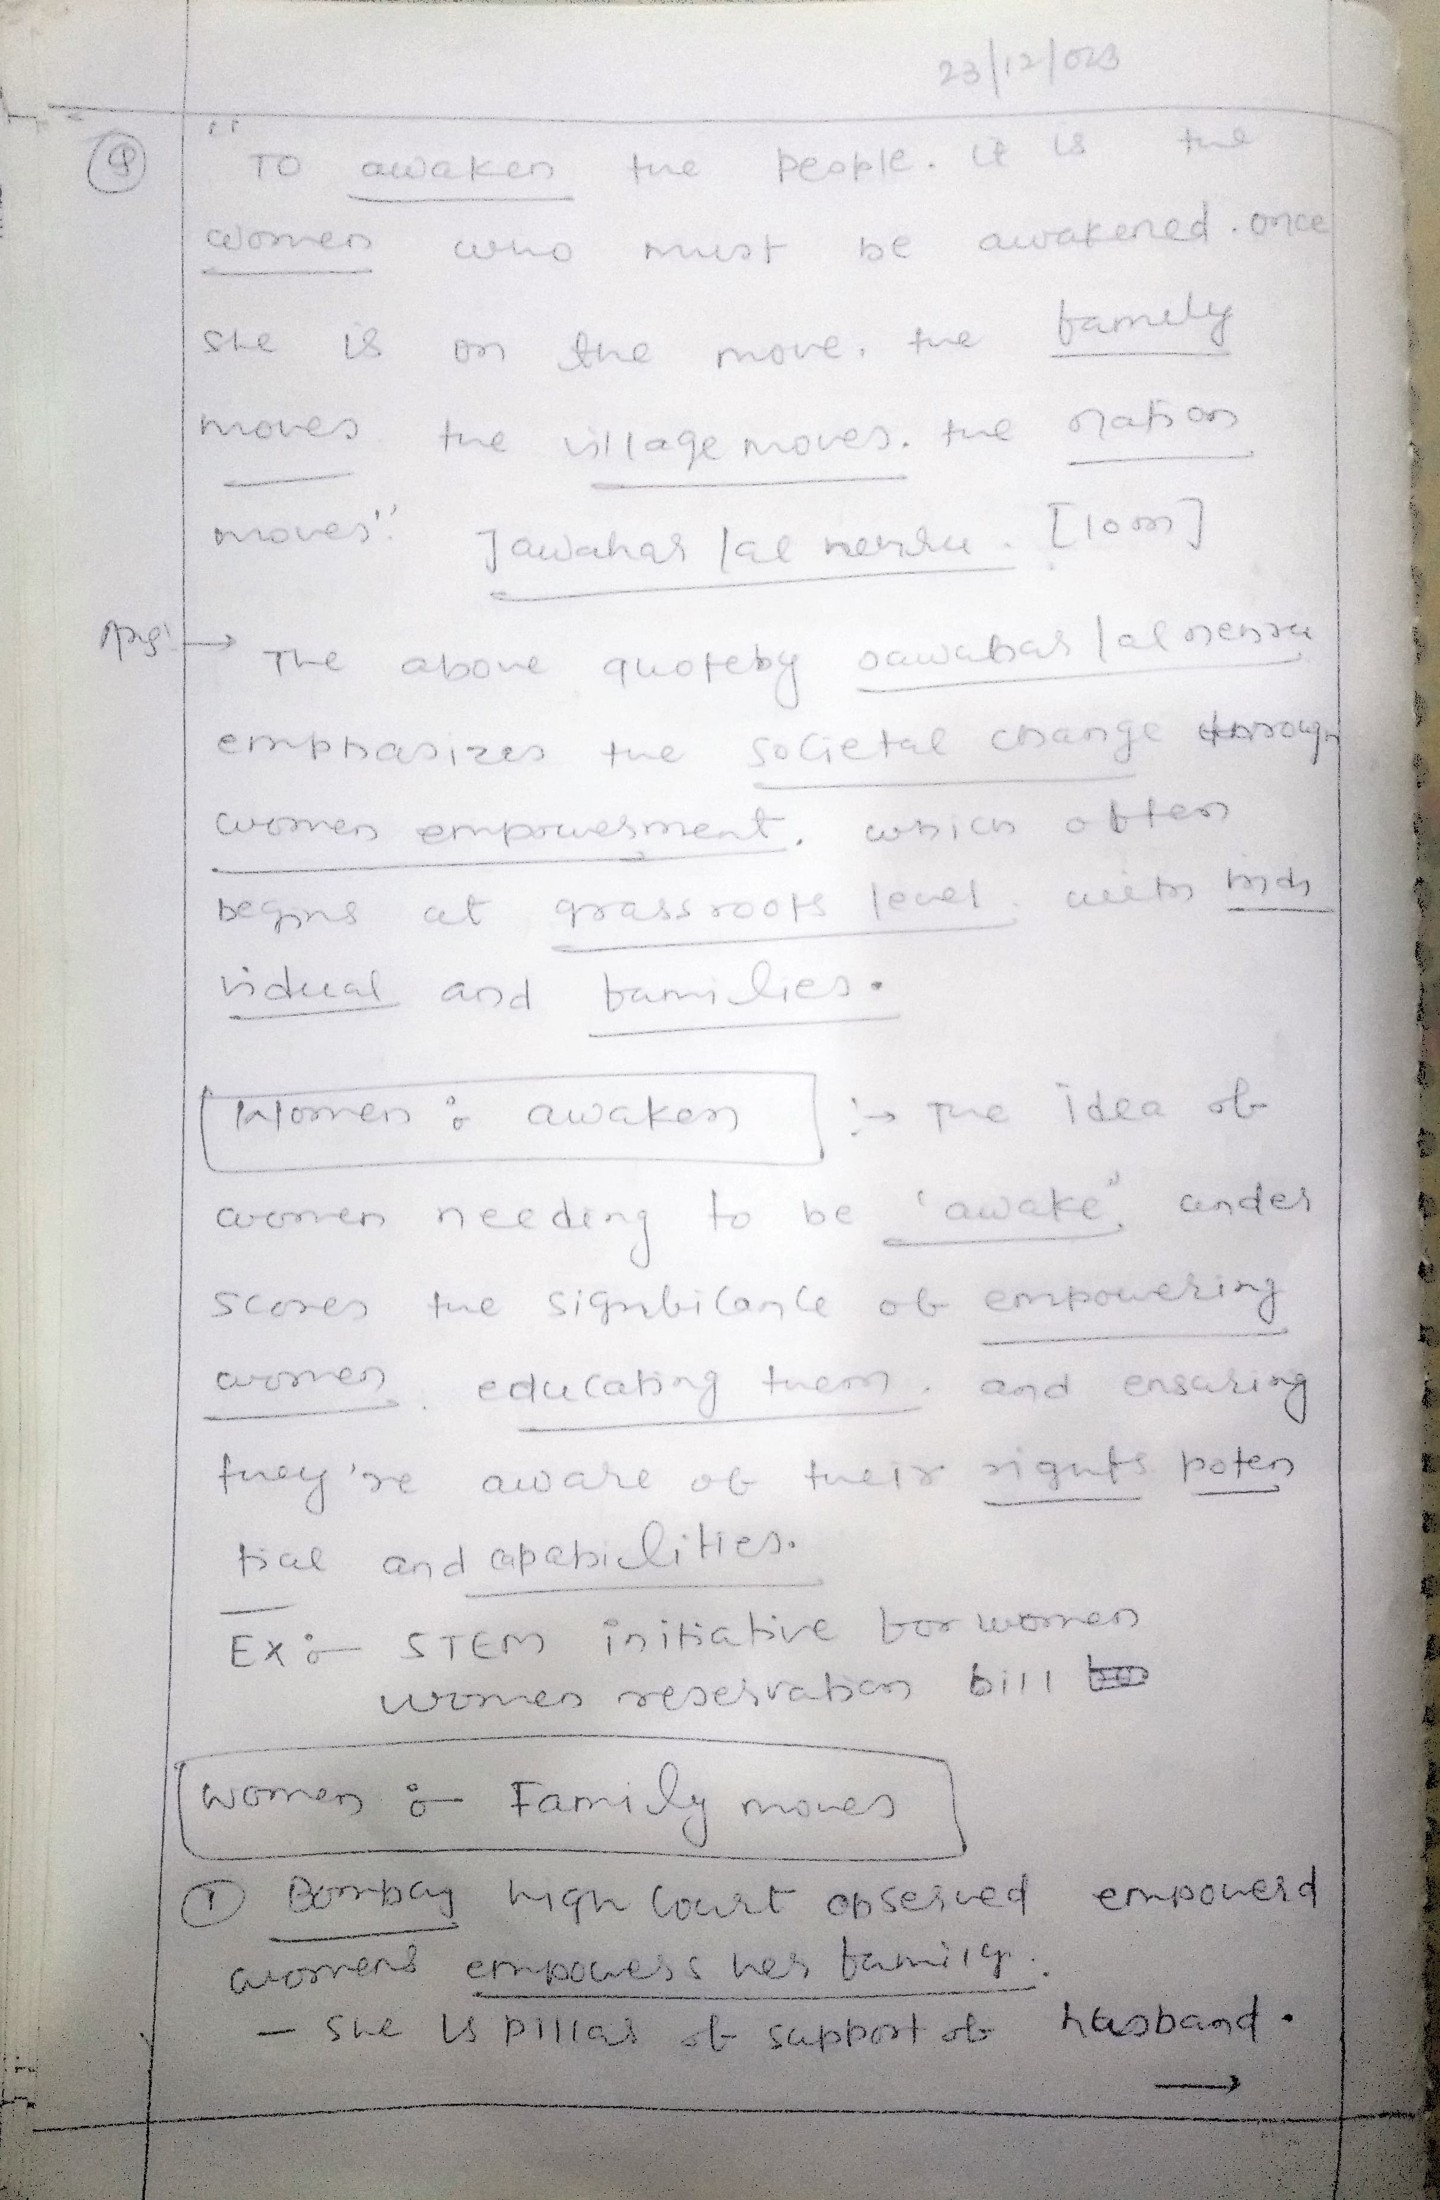 23/12/023
Q "TO awaken the people. it is the
women who must be awakened. once
she is on the move. the family
moves the village moves. the nation
moves". Jawahar lal nehru. [10m]
Ans! → The above quoteby Jawahar lal nehru
emphasizes the societal change through
women empowerment, which often
begins at grassroots level. with indi
vidual and families.
Women : awaken :→ The idea of
women needing to be 'awake", under
scores the significance of empowering
women, educating them. and ensuring
they're aware of their rights poten
tial and capabilities.
Ex :- STEM initiative for women
women reservation bill
women :- Family moves
① Bombay high Court observed empowerd
womens empowers her family.
- She is pillar of support of husband.
→